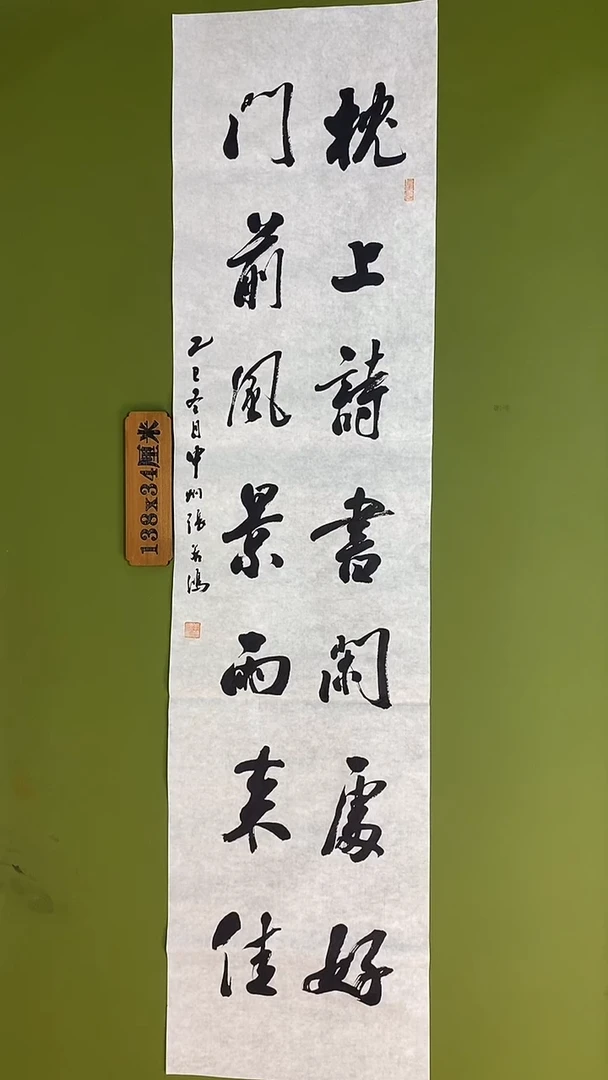 枕上詩書閑處好
門前風景雨来佳
乙巳冬月中州張若鴻
138x34厘米